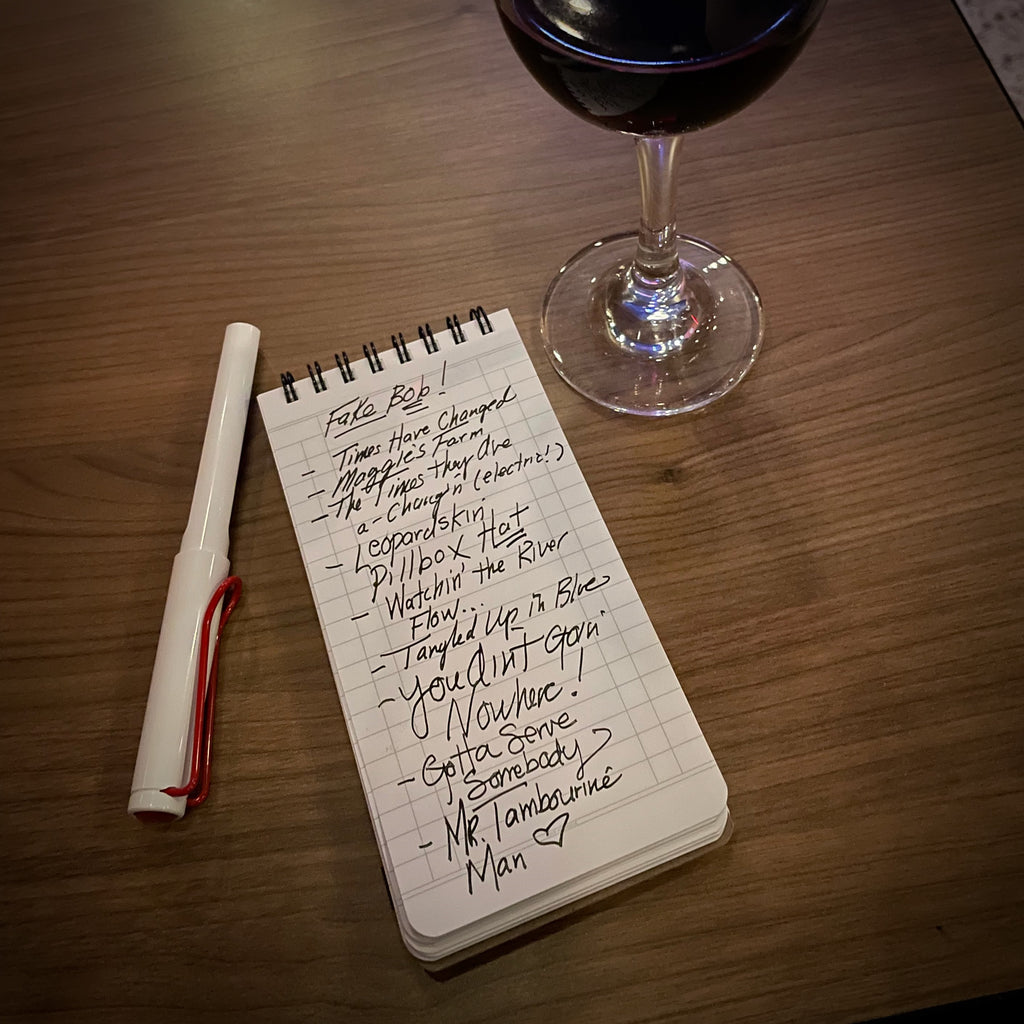 Fake Bob!
- Times Have Changed
- Maggie's Farm
- The Times they Are
a-Changin' (electric!)
- Leopardskin
Pillbox Hat
- Watchin' the River
Flow...
- Tangled Up in Blue
- You Aint Goin'
Nowhere!
- Gotta Serve
Somebody
- MR. Tambourine
Man ♡